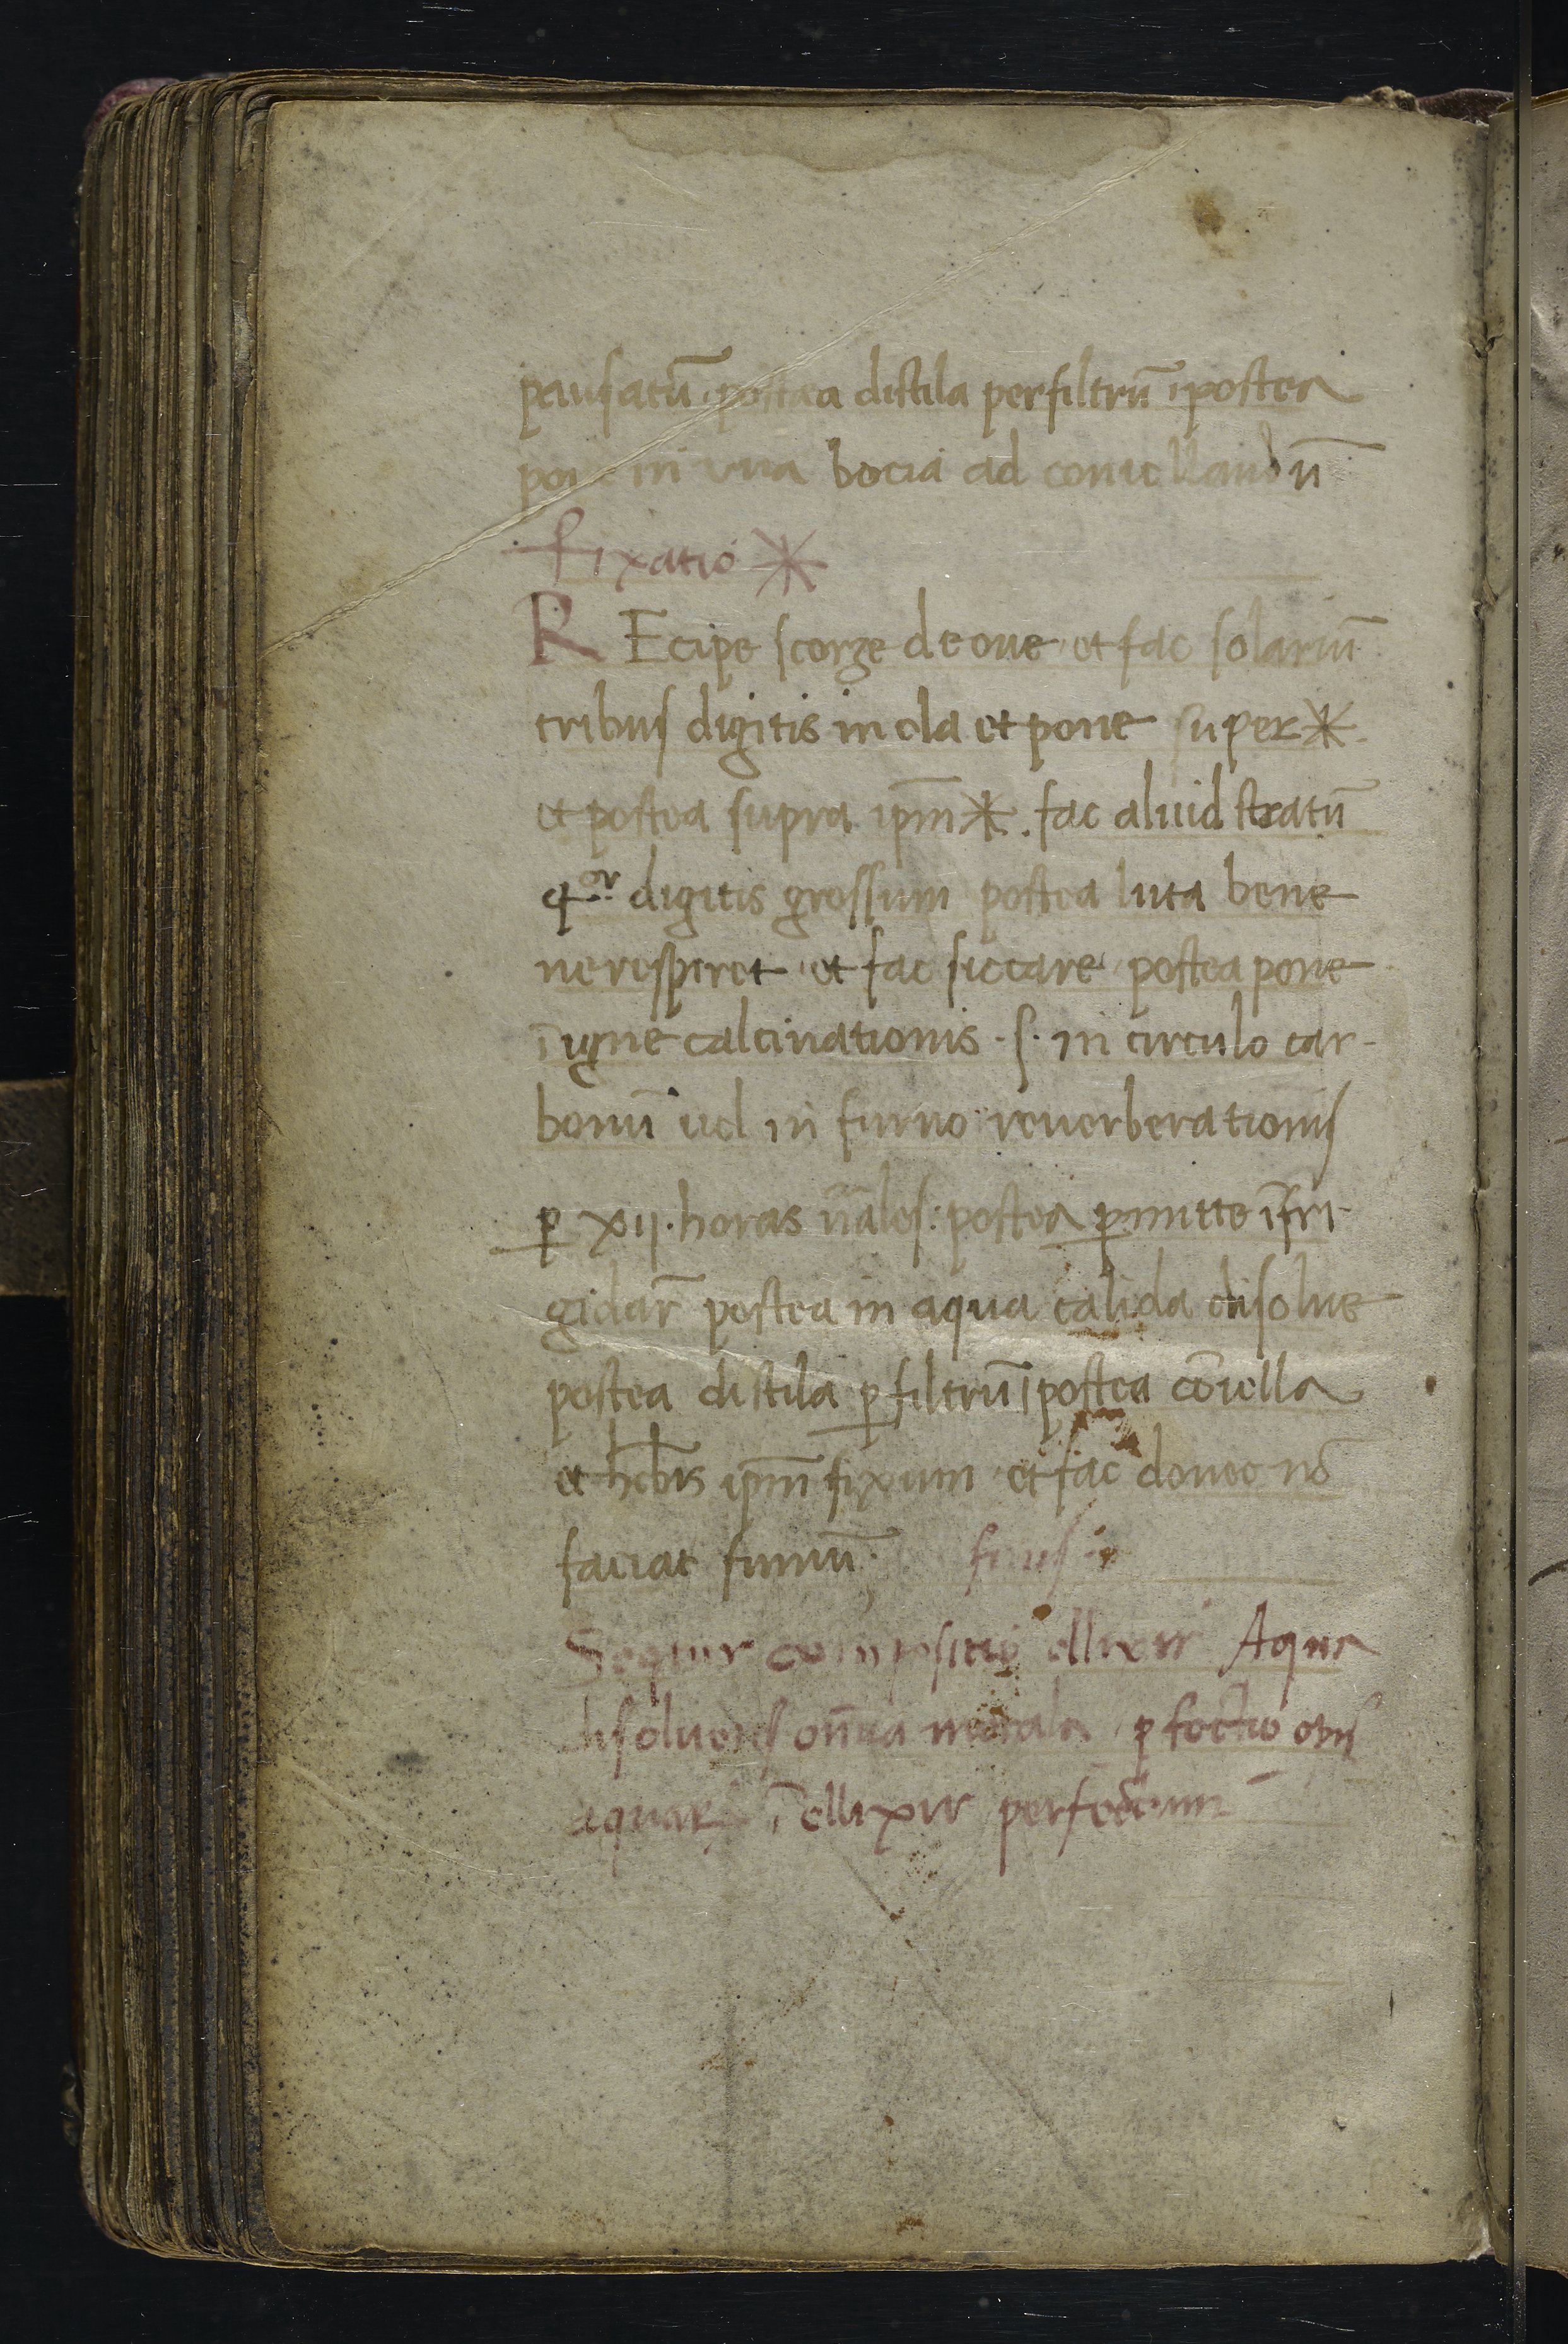 pausatū postea distila per filtrū ⁊ postea
pone in vna bocia ad conuellandū
fixatio *
R Ecipe scorze de oue et fac solariū
tribus digitis in ola et pone super *
et postea supra ipm̄ *. fac aliud stratū
4or digitis grossum postea luta bene
ne respiret et fac siccare postea pone
ī igne calcinationis .s. in circulo car-
bonū uel in furno reuerberationis
ꝑ xij. horas n̄ales: postea ꝑmitte īfri-
gidar̄ postea in aqua calida disolue
postea distila ꝑ filtrū ⁊ postea cōiella
et hēbis ipm̄ fixum et fac donec nō
faciat fumū. finis
Sequitur compositio ellixir Aqua
disoluens on̄ia metala ꝑfectio
aquarꝫ ī ellixir perfectum